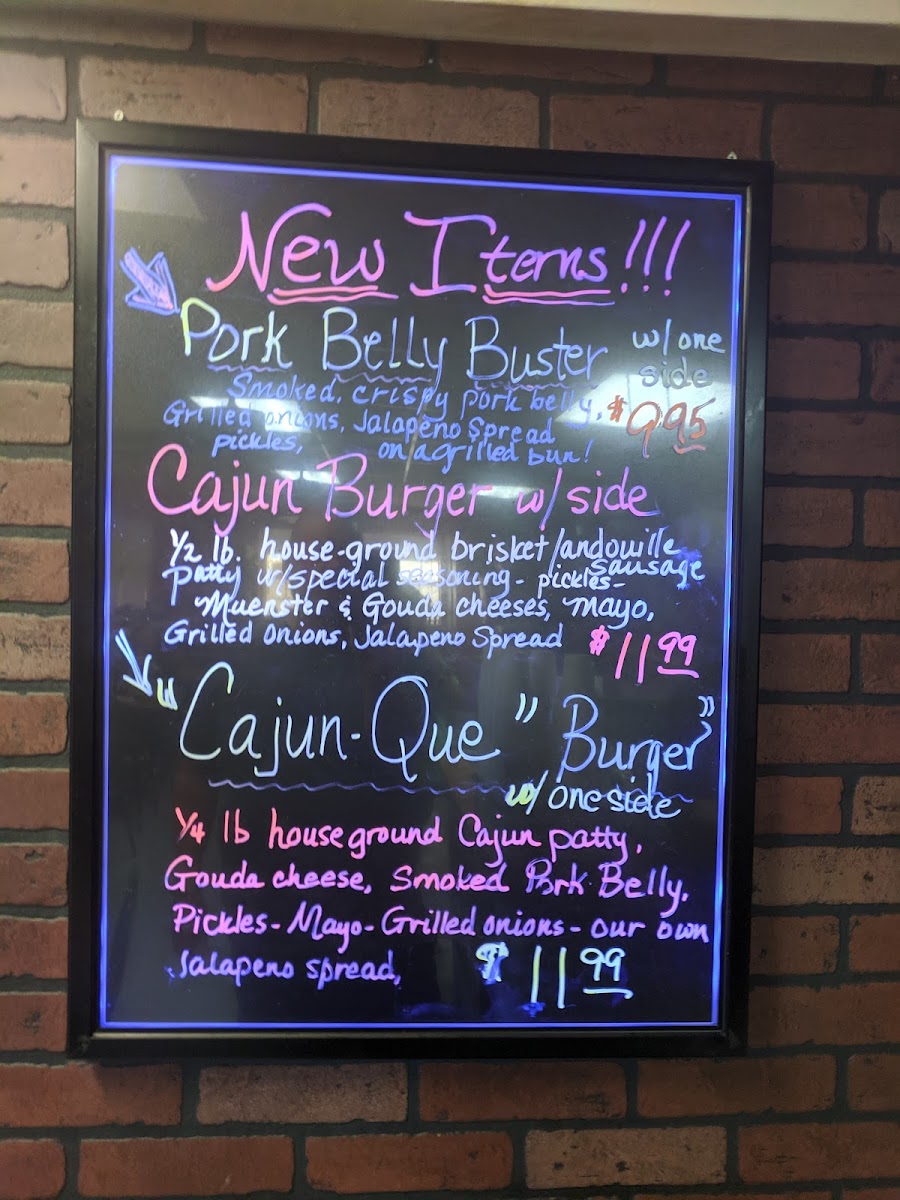 New Items!!!
Pork Belly Buster w/one side
Smoked, crispy pork belly, $9.95
Grilled onions, Jalapeño Spread
pickles, on a grilled bun!
Cajun Burger w/ side
1/2 lb. house-ground brisket/andouille
Sausage
patty w/special seasoning - pickles-
Muenster & Gouda cheeses, mayo,
Grilled onions, Jalapeno Spread $11.99
"Cajun-Que" Burger"
w/ one side
1/4 lb house ground Cajun patty,
Gouda cheese, Smoked Pork Belly,
Pickles-Mayo-Grilled onions-our own
Jalapeno spread, $11.99